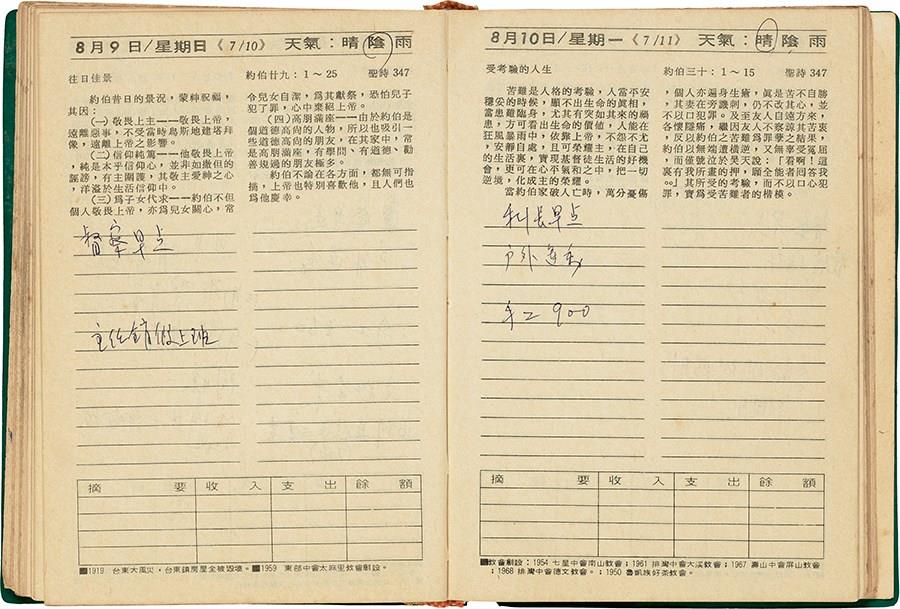 8月9日/星期日《7/10》 天氣：晴陰雨
往日佳景 約伯廿九：1～25 聖詩 347
約伯昔日的景況，蒙神祝福，
其因：
(一)敬畏上主——敬畏上帝，
遠離惡事，不受當時烏斯地建塔拜
像，遠離上帝之影響。
(二)信仰純篤——他敬畏上帝
，純是本乎信仰心，並非如撒但的
誣謗，有主關護，其敬主愛神之心
，洋溢於生活信仰中。
(三)爲子女代求——約伯不但
個人敬畏上帝，亦爲兒女關心，常
令兒女自潔，爲其獻祭，恐怕兒子
犯了罪，心中棄絕上帝。
(四)高朋滿座——由於約伯是
個道德高尚的人物，所以也吸引一
些道德高尚的朋友，在其家中，常
是高朋滿座，有學問、有道德、勸
善規過的朋友極多。
約伯不論在各方面，都無可指
摘，上帝也特別喜歡他，且人們也
爲他慶幸。
督察早点
主任銷假上班
摘要 收入 支出 餘額
■1919 台東大風災，台東鎮房屋全被毀壞。■1959 東部中會太麻里教會創設。
8月10日/星期一《7/11》 天氣：晴陰雨
受考驗的人生 約伯三十：1～15 聖詩 347
苦難是人格的考驗，人當平安
穩妥的時候，顯不出生命的眞相，
當患難臨身，尤其有突如其來的禍
患，方可看出生命的價值，人能在
狂風暴雨中，依靠上帝，不怨不尤
，安靜自處，且可榮耀主，在自己
的生活裏，實現基督徒生活的好機
會，更可在心平氣和之中，把一切
逆境，化成主的榮耀。
當約伯家破人亡時，萬分憂傷
，個人亦遍身生瘡，眞是苦不自勝
，其妻在旁譏刺，仍不改其心，並
不以口犯罪。及至友人自遠方來，
各懷隱痛，繼因友人不察諒其苦衷
，反以約伯之苦難爲罪孽之結果，
約伯以無端遭橫逆，又無辜受冤屈
，而僅號泣於昊天說：「看啊！這
裏有我所畫的押，願全能者回答我
。」其所受的考驗，而不以口心犯
罪，實爲受苦難者的楷模。
科長早点
戶外運動
手工 900
摘要 收入 支出 餘額
■教會創設：1954 七星中會南山教會；1961 排灣中會大溪教會；1967 壽山中會屏山教會
；1968 排灣中會德文教會。。1950 魯凱族好茶教會。